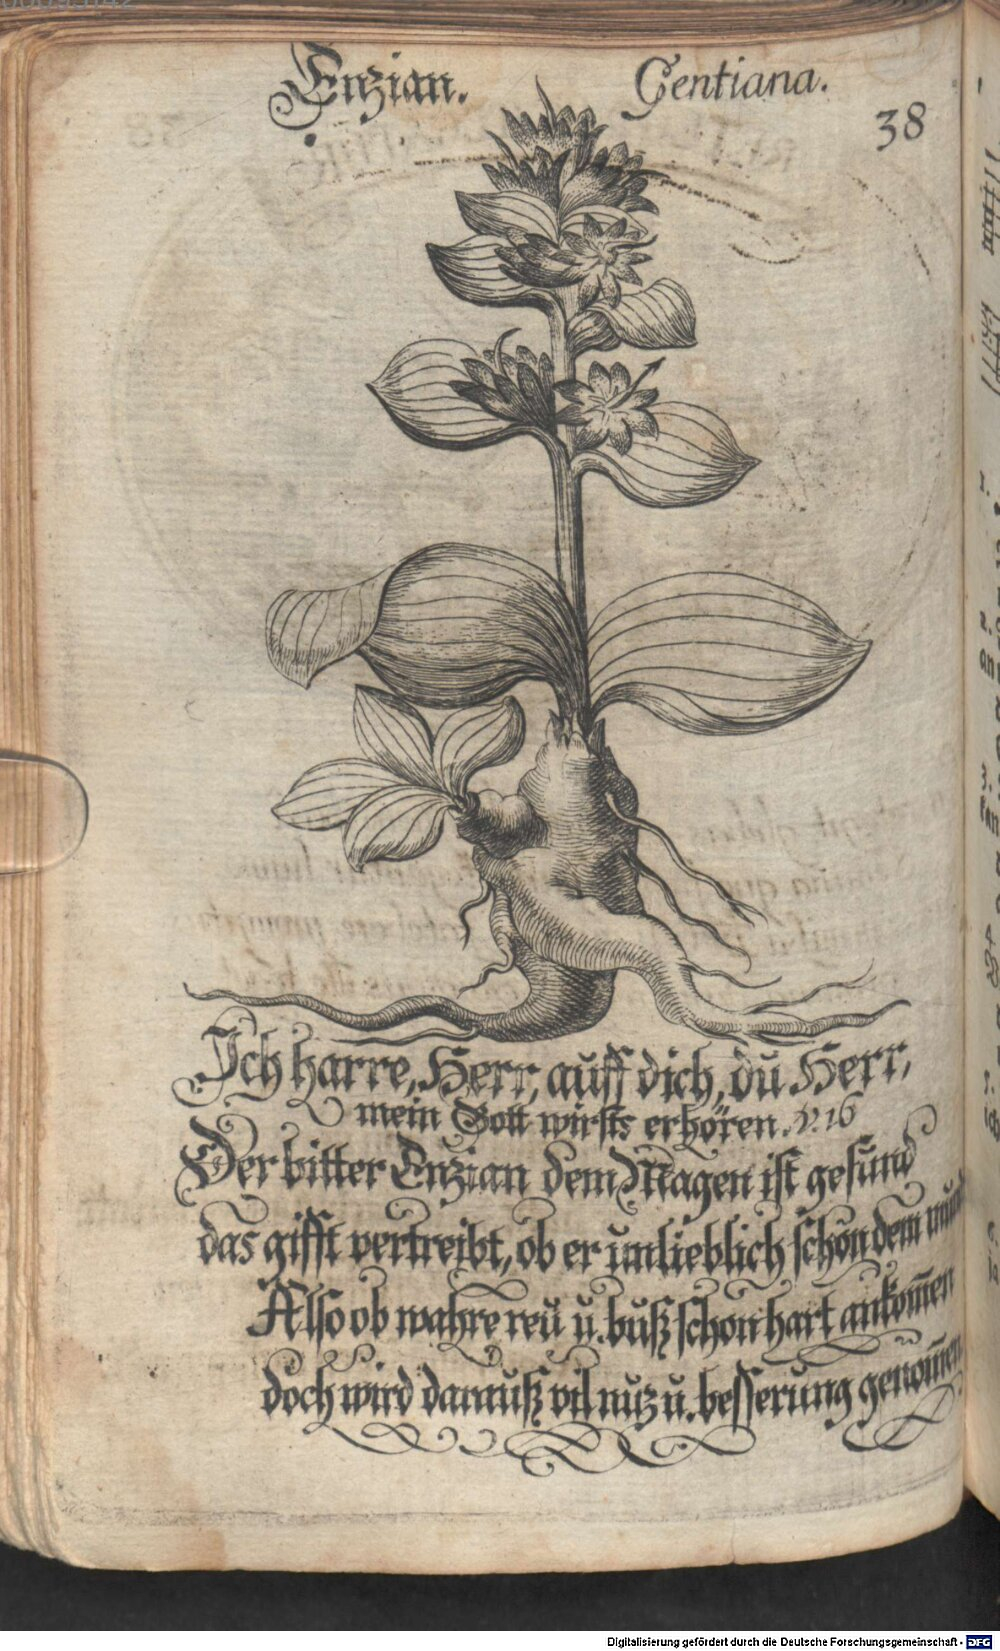 Enzian. Gentiana.
38
Ich harre, Herr, auff dich, du Herr,
mein Gott wirsts erhören. v. 16
Der bitter Enzian dem Magen ist gesund
das gifft vertreibt, ob er unlieblich schon dem mund
Also ob wahre reü u. buß schon hart ankom̅en
doch wird darauß vil nuz u. besserung genom̅en
Digitalisierung gefördert durch die Deutsche Forschungsgemeinschaft - DFG